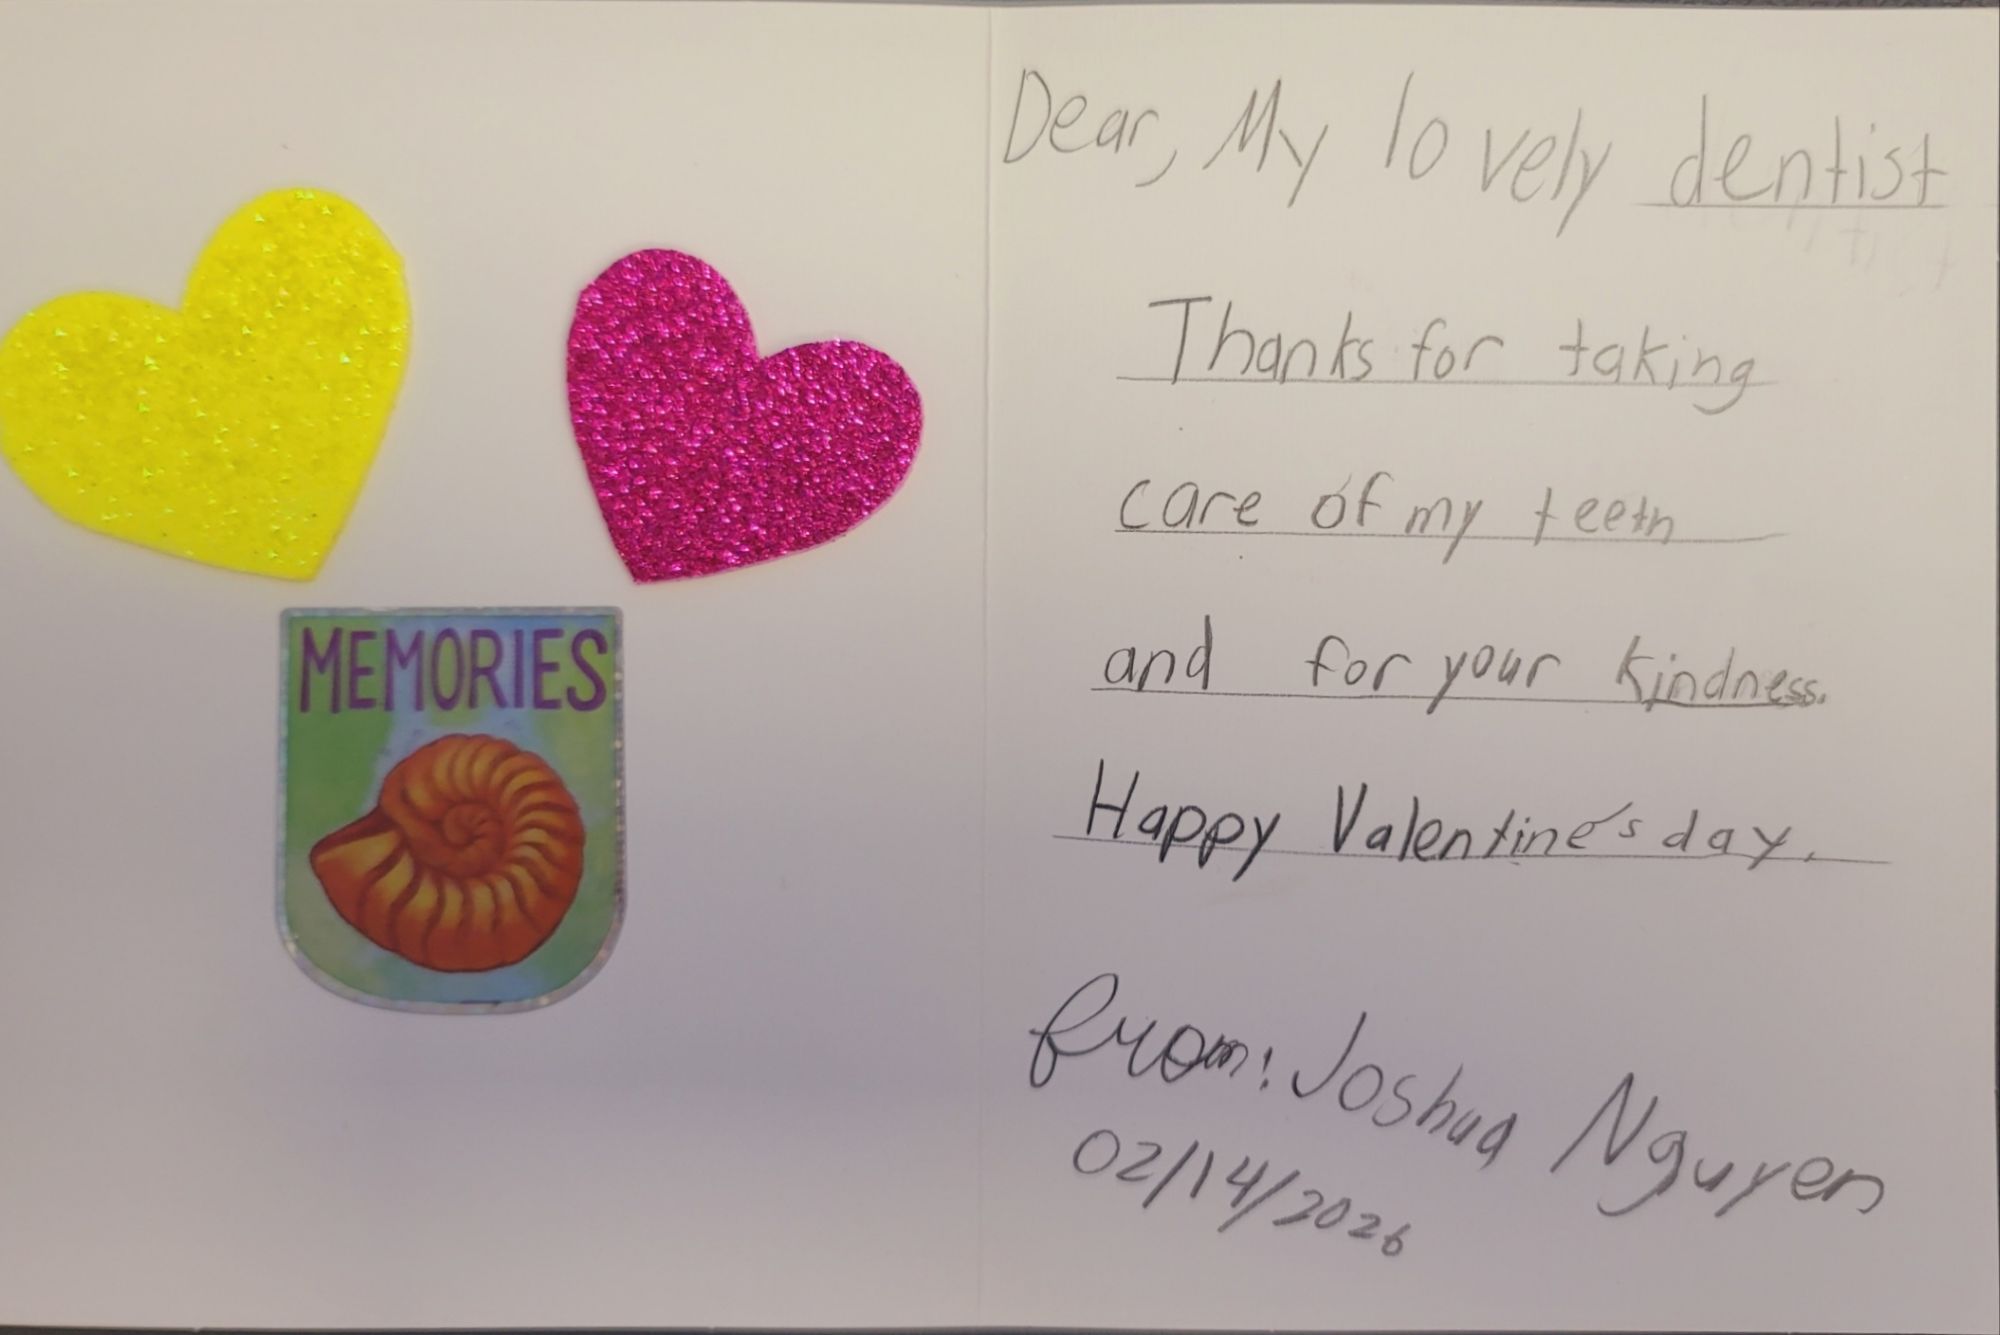 MEMORIES
Dear, My lovely dentist
Thanks for taking
care of my teeth
and for your kindness.
Happy Valentine's day.
from: Joshua Nguyen
02/14/2026